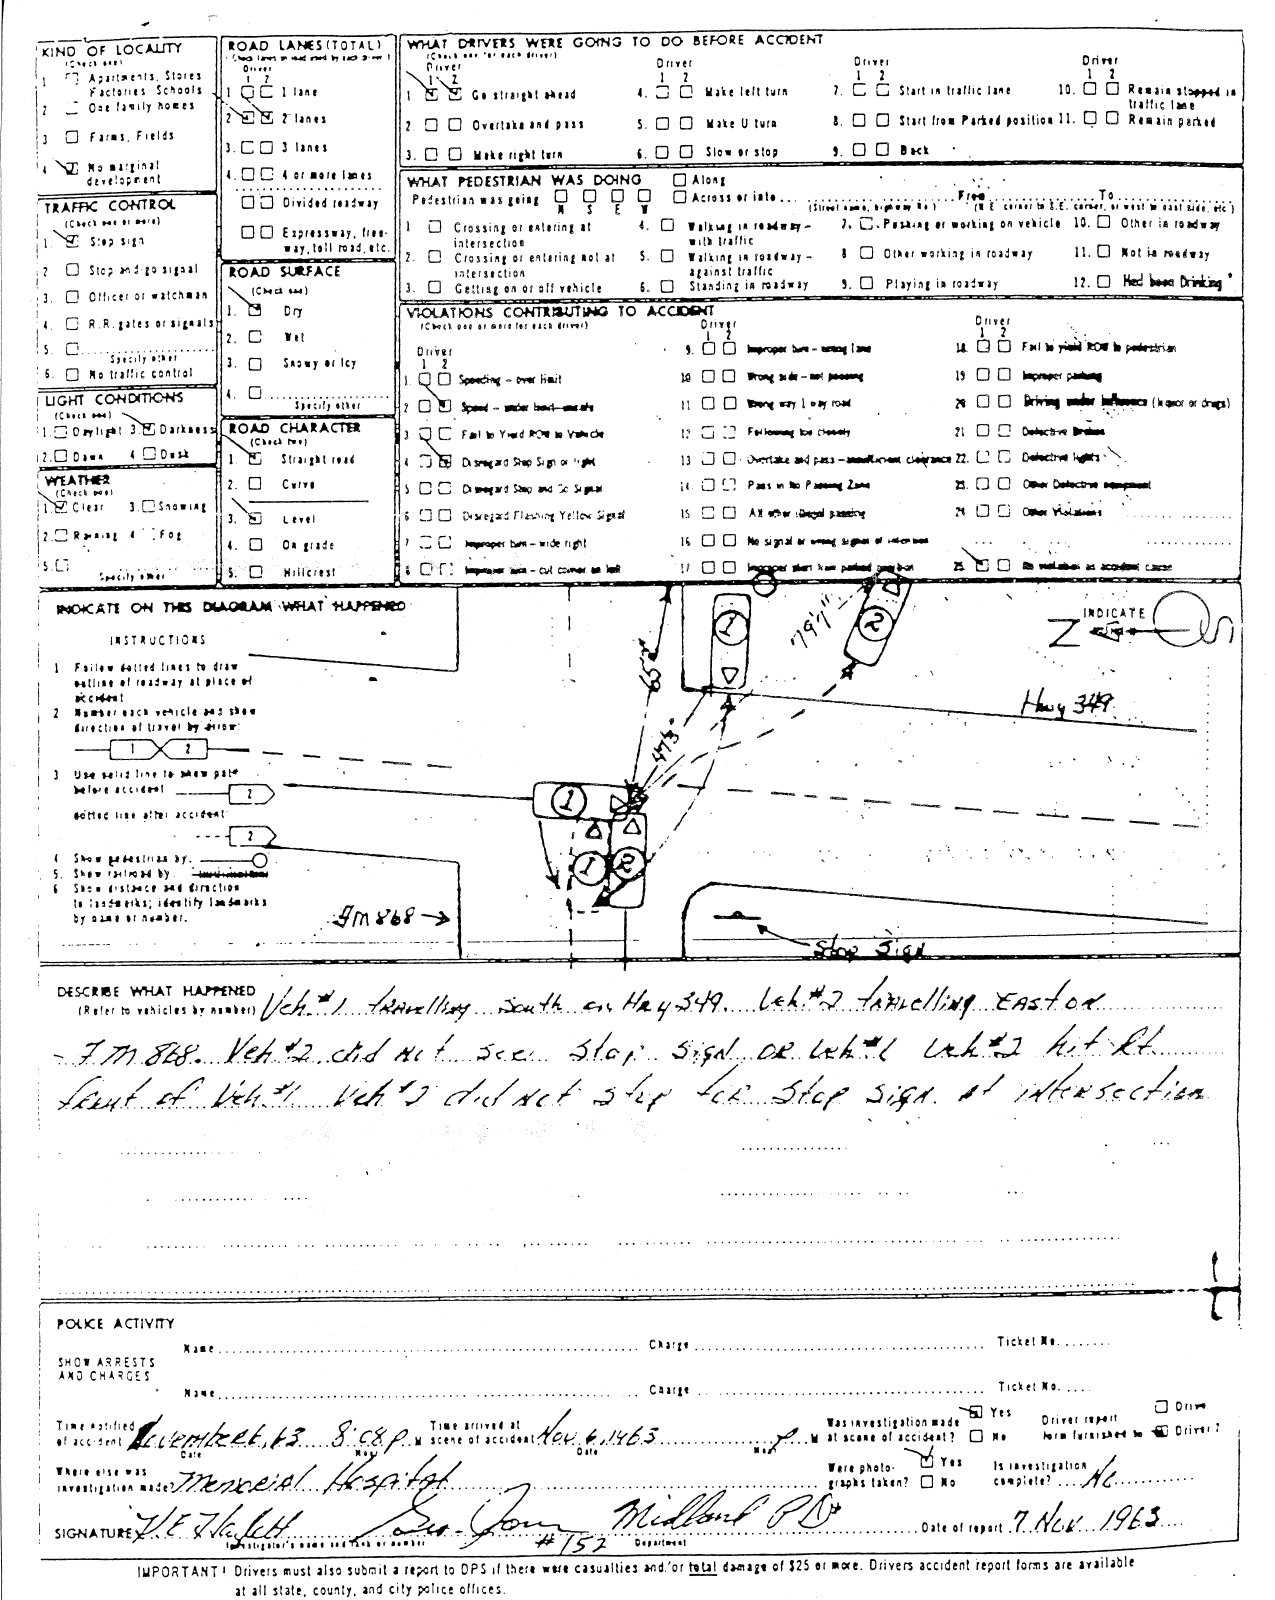 KIND OF LOCALITY
(Check one)
1 Apartments, Stores
Factories, Schools
2 One family homes
3 Farms, Fields
4 No marginal
development
TRAFFIC CONTROL
(Check one or more)
1. Stop sign
2 Stop and go signal
3. Officer or watchman
4. R.R. gates or signals
5.
Specify other
6. No traffic control
LIGHT CONDITIONS
(Check one)
1. Daylight 3. Darkness
2. Dawn 4 Dusk
WEATHER
(Check one)
1. Clear 3. Snowing
2. Raining 4 Fog
5.
Specify other
ROAD LANES (TOTAL)
Driver
1 2
1 1 lane
2 2 lanes
3. 3 lanes
4. 4 or more lanes
Divided roadway
Expressway, free-
way, toll road, etc.
ROAD SURFACE
(Check one)
1. Dry
2. Wet
3. Snowy or Icy
4.
Specify other
ROAD CHARACTER
(Check two)
1. Straight road
2. Curve
3. Level
4. On grade
5. Hillcrest
WHAT DRIVERS WERE GOING TO DO BEFORE ACCIDENT
(Check one for each driver)
Driver Driver Driver Driver
1 2 1 2 1 2 1 2
1 Go straight ahead 4. Make left turn 7. Start in traffic lane 10. Remain stopped in
traffic lane
2 Overtake and pass 5. Make U turn 8. Start from Parked position 11. Remain parked
3. Make right turn 6. Slow or stop 9. Back
WHAT PEDESTRIAN WAS DOING Along
Pedestrian was going Across or into From To
N S E W (Street name, highway No.) (N.E. corner to S.E. corner, or west to east side, etc.)
1 Crossing or entering at
intersection
4. Walking in roadway -
with traffic
7. Pushing or working on vehicle 10. Other in roadway
2. Crossing or entering not at
intersection
5. Walking in roadway -
against traffic
8 Other working in roadway 11. Not in roadway
3. Getting on or off vehicle 6. Standing in roadway 9. Playing in roadway 12. Had been Drinking
VIOLATIONS CONTRIBUTING TO ACCIDENT
(Check one or more for each driver)
Driver
1 2
1. Speeding - over limit
2 Speed - under limit - unsafe
3 Fail to Yield ROW to Vehicle
4 Disregard Stop Sign or light
5 Disregard Stop and Go Signal
6 Disregard Flashing Yellow Signal
7 Improper turn - wide right
8 Improper turn - cut corner on left
Driver
1 2
9. Improper turn - wrong lane
10 Wrong side - not passing
11 Wrong way 1 way road
12 Following too closely
13 Overtake and pass - insufficient clearance
14 Pass in No Passing Zone
15 All other illegal passing
16 No signal or wrong signal of intention
17 Improper start from parked position
Driver
1 2
18 Fail to yield ROW to pedestrian
19 Improper parking
20 Driving under influence (liquor or drugs)
21 Defective Brakes
22. Defective lights
23. Other Defective equipment
24 Other Violations
25 No violation as accident cause
INDICATE ON THIS DIAGRAM WHAT HAPPENED
INSTRUCTIONS
1 Follow dotted lines to draw
outline of roadway at place of
accident
2 Number each vehicle and show
direction of travel by arrow:
1 2
3 Use solid line to show path
before accident 2
dotted line after accident
2
4 Show pedestrian by:
5. Show railroad by
6 Show distance and direction
to landmarks; identify landmarks
by name or number.
1
79'7"
2
INDICATE
65'
47'3"
Hwy 349
1
1
2
FM 868
Stop Sign
DESCRIBE WHAT HAPPENED
(Refer to vehicles by number) Veh. #1 travelling South on Hwy 349. Veh. #2 travelling East on
FM 868. Veh #2 did not see Stop Sign or Veh #1 Veh #2 hit Rt
front of Veh #1 Veh #2 did not stop for Stop Sign at intersection
POLICE ACTIVITY
SHOW ARRESTS
AND CHARGES
Name Charge Ticket No.
Name Charge Ticket No.
Time notified
of accident November 6, 63 8:08 P M
Date Hour
Time arrived at
scene of accident Nov 6, 1963 P M
Date Hour
Was investigation made
at scene of accident? Yes No
Driver report
form furnished to Driver 2
Where else was
investigation made? Memorial Hospital
Were photo-
graphs taken? Yes No
Is investigation
complete? No
SIGNATURE #152 Midland PD
Investigator's name and rank or number Department
Date of report 7 Nov 1963
IMPORTANT! Drivers must also submit a report to DPS if there were casualties and/or total damage of $25 or more. Drivers accident report forms are available
at all state, county, and city police offices.